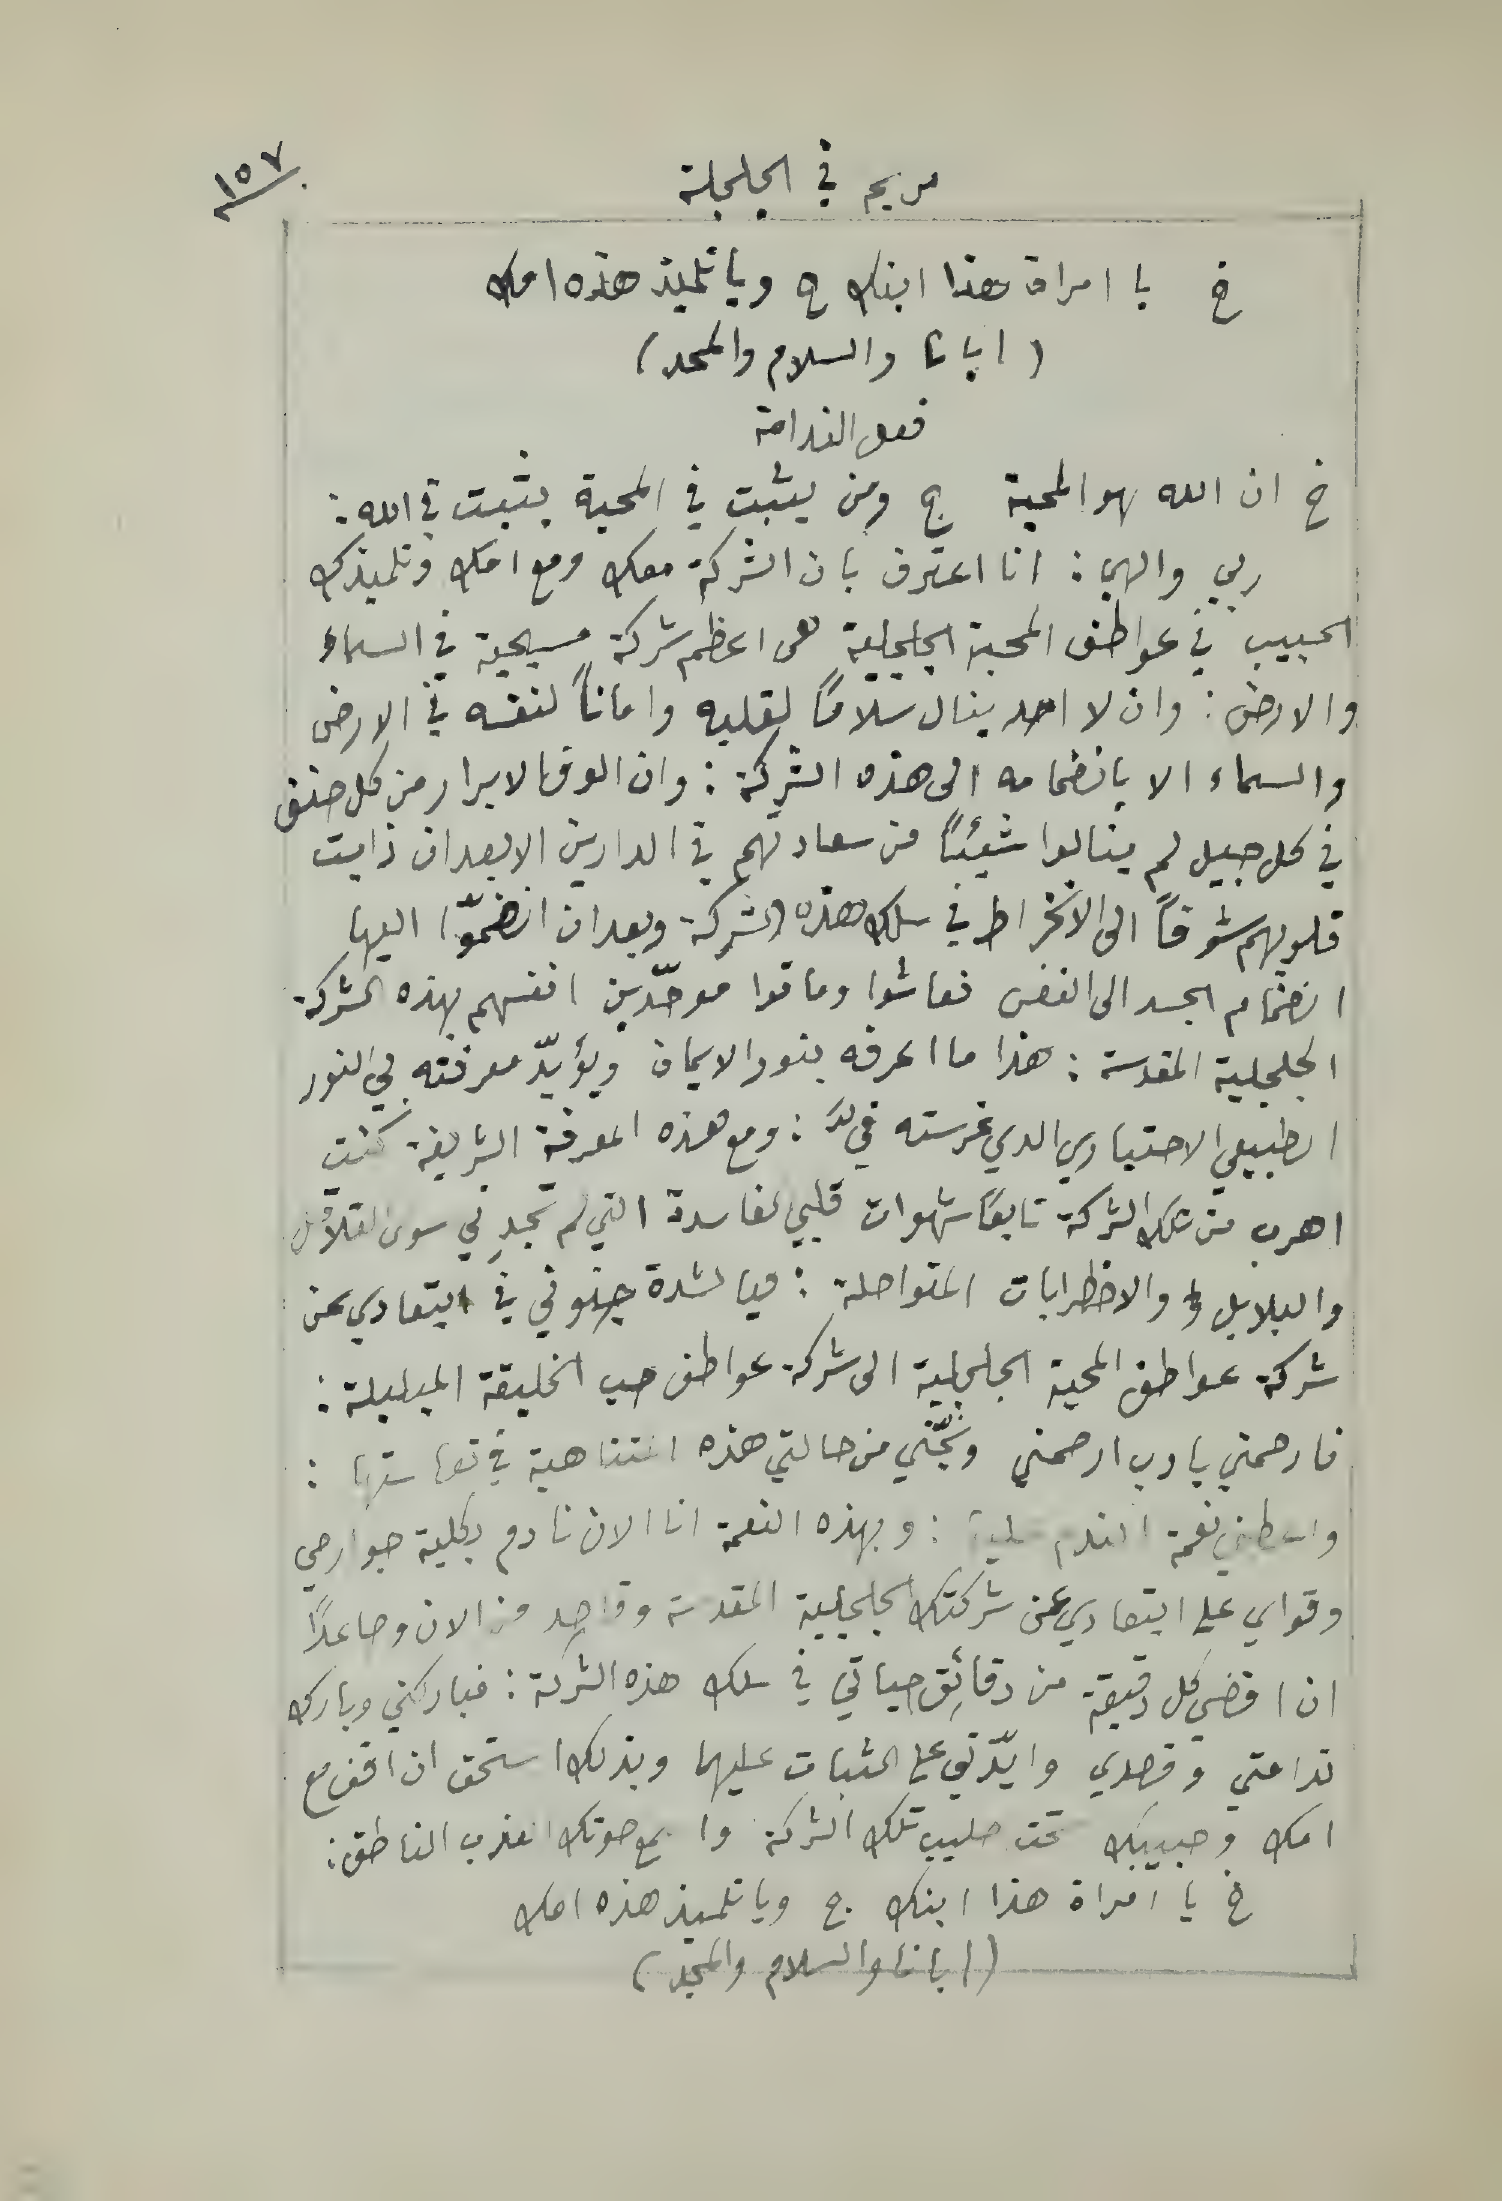 ١٥٧
مريم في الجلجلة
خ يا امراة هذا ابنك ج ويا تلميذ هذه امك
( ابانا والسلام والمجد )
فعل الندامة
خ ان الله هو المحبة ج ومن يثبت في المحبة يثبت في الله :
ربي والهي : انا اعترف بان الشركة معك ومع امك وتلميذك
الحبيب في عواطف المحبة الجلجلية هي اعظم شركة مسيحية في السماء
والارض : وان لا احد ينال سلامًا لقلبه واماناً لنفسه في الارض
والسماء الا بانضمامه الى هذه الشركة : وان الوف الابرار من كل صنف
في كل جيل لم ينالوا شيئًا من سعادتهم في الدارين الا بعد ان ذابت
قلوبهم شوقاً الى الانخراط في سلك هذه الشركة وبعد ان انضمّوا اليها
انضمام الجسد الى النفس فعاشوا وماتوا موحّدين انفسهم بهذه الشركة
الجلجلية المقدسة : هذا ما اعرفه بنور الايمان ويؤيدّ معرفته لي النور
الطبيعي الاختياري الذي غرسته فيَّ : ومع هذه المعرفة الشريفة كنت
اهرب من تلك الشركة تابعًا شهوات قلبي الفاسدة التي لم تجدِني سوى القلاقل
والبلابل والاضطرابات المتواصلة : فيا لشدة جنوني في ابتعادي عن
شركة عواطف المحبة الجلجلية الى شركة عواطف حب الخليقة المبلبلة :
فارحمني يا رب ارحمني ونجّني من حالتي هذه المتناهية في تعاستها :
واعطني نعمة الندم عليها : وبهذه النعمة انا الان نادم بكلية جوارحي
وقواي على ابتعادي عن شركتك الجلجلية المقدسة وقاصد من الان وصاعدًا
ان اقضي كل دقيقة من دقائق حياتي في سلك هذه الشركة : فباركني وبارك
ندامتي وقصدي وايّدني على الثبات عليها وبذلك استحق ان اقف مع
امك وحبيبك تحت صليب تلك الشركة واسمع صوتك العذب الناطق :
خ يا امراة هذا ابنك ج ويا تلميذ هذه امك
( ابانا والسلام والمجد )